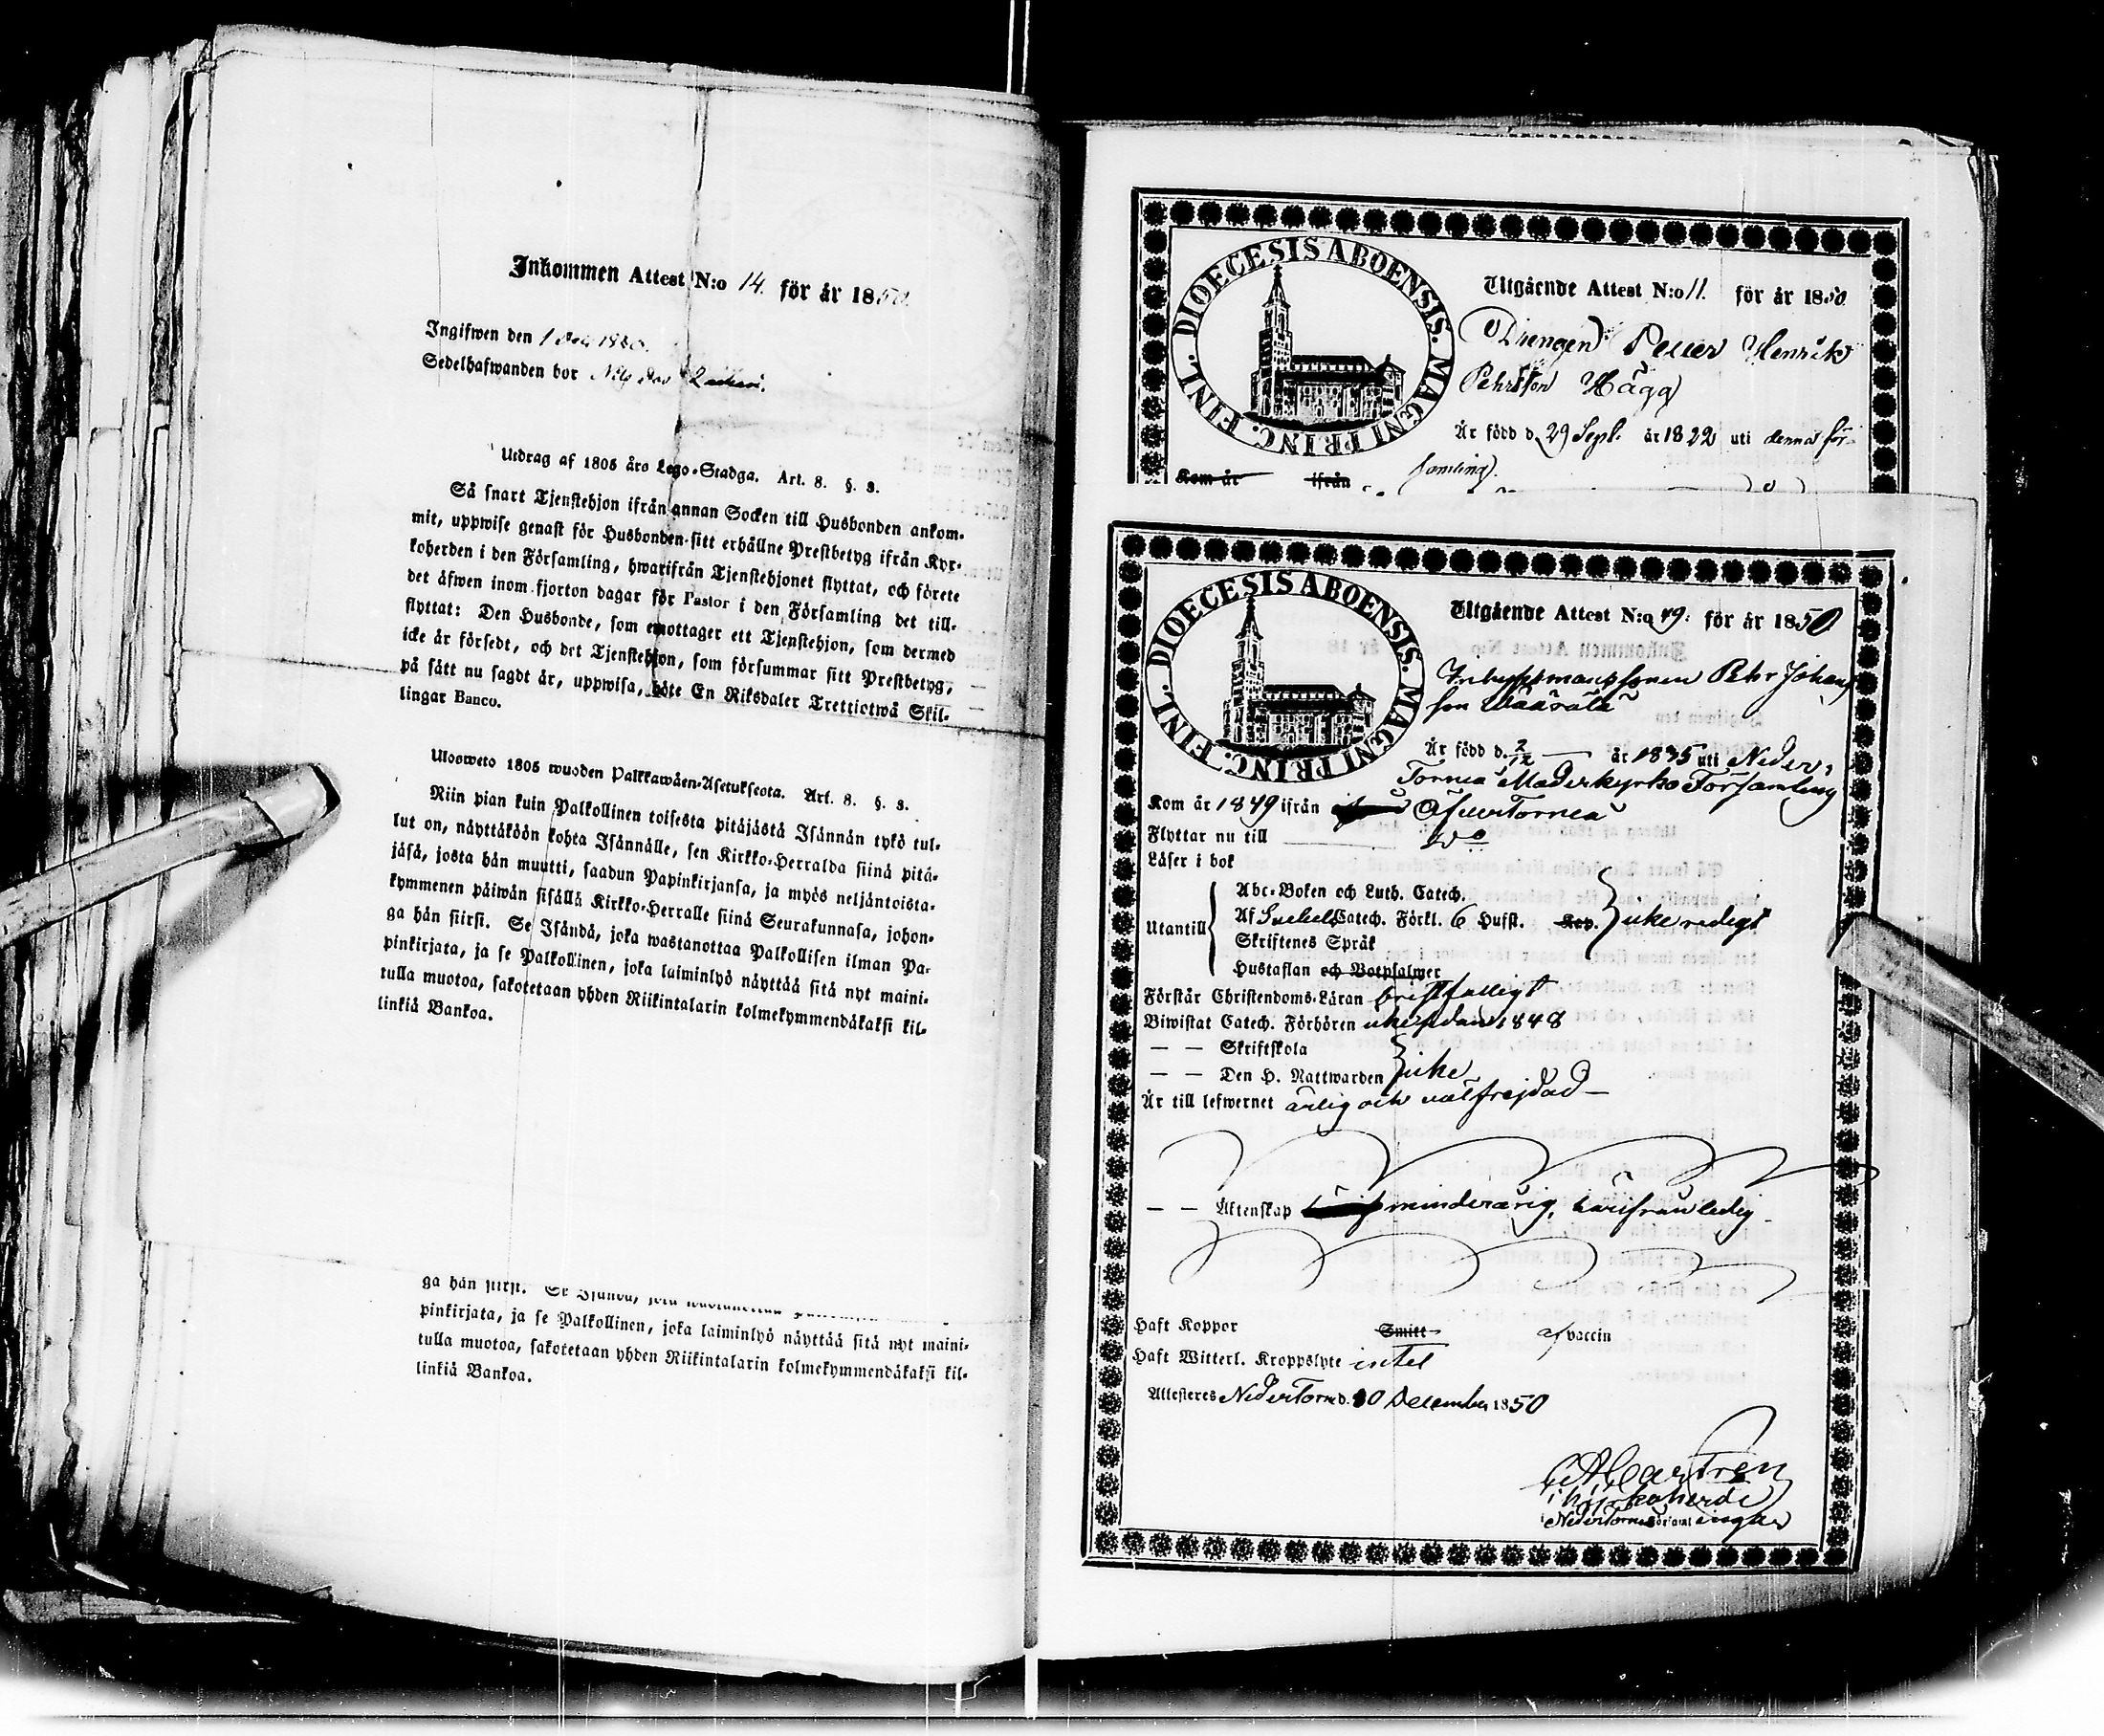 Inkommen Attest N:o 14. för år 1850.
Ingifwen den 1
Sedelhafwanden bor
Utdrag af 1805 års Lego-Stadga. Art. 8. §. 3.
Så snart Tjenstehjon ifrån annan Socken till Husbonden ankom-
mit, uppwise genast för Husbonden sitt erhållne Prestbetyg ifrån Kyr-
koherden i den Församling, hwarifrån Tjenstehjonet flyttat, och förete
det äfwen inom fjorton dagar för Pastor i den Församling det till-
flyttat: Den Husbonde, som emottager ett Tjenstehjon, som dermed
icke är försedt, och det Tjenstehjon, som försummar sitt Prestbetyg,
på sätt nu sagdt är, uppwisa, böte En Riksdaler Trettiotwå Skil-
lingar Banco.
Ulosweto 1805 wuoden Palkkawäen-Asetuksesta. Art. 8. §. 3.
Niin pian kuin Palkollinen toisesta pitäjästä Isännän tykö tul-
lut on, näyttäköön kohta Isännälle, sen Kirkko-Herralda siinä pitä-
jäsä, josta hän muutti, saadun Papinkirjansa, ja myös neljäntoista-
kymmenen päiwän sisällä Kirkko-Herralle siinä Seurakunnasa, johon-
ga hän siirsi. Se Isändä, joka wastanottaa Palkollisen ilman Pa-
pinkirjata, ja se Palkollinen, joka laiminlyö näyttää sitä nyt maini-
tulla muotoa, sakotetaan yhden Riikintalarin kolmekymmendäkaksi kil-
linkiä Bankoa.
ga hän siirsi. Se Isändä, joka wastanottaa
pinkirjata, ja se Palkollinen, joka laiminlyö näyttää sitä nyt maini-
tulla muotoa, sakotetaan yhden Riikintalarin kolmekymmendäkaksi kil-
linkiä Bankoa.
DIOECESIS ABOENSIS. MAGNI PRINC. FINL.
Utgående Attest N:o 11. för år 1850
Drengen Petter Henrik
Pehrsson Hägg
Är född d. 29 Sept. år 1822 uti denna för-
samling.
Kom år ifrån
DIOECESIS ABOENSIS. MAGNI PRINC. FINL.
Utgående Attest N:o 49. för år 1850
Pehr Johans
son Wäärälä
Är född d. 2/12 år 1835 uti Neder
Torneå Moderkyrko Församling
Kom år 1849 ifrån ÖfwerTorneå
Flyttar nu till do
Läser i bok
Abc-Boken och Luth. Catech.
Utantill Af Svebel. Catech. Förkl. 6 Hufst. icke redigt
Skriftenes Språk
Hustaflan och Botpsalmer
Förstår Christendoms-Läran bristfälligt
Biwistat Catech. Förhören icke sedan 1848
— — Skriftskola
— — Den H. Nattwarden icke
Är till lefwernet ärlig och välfrejdad —
— — Äktenskap minderårig, härifrån ledig
Haft Koppor Smitt af vaccin
Haft Witterl. Kroppslyte intet
Attesteras NederTorneå d. 10 December 1850
Castrén
Kyrkoherde
NederTorneå Församlingar